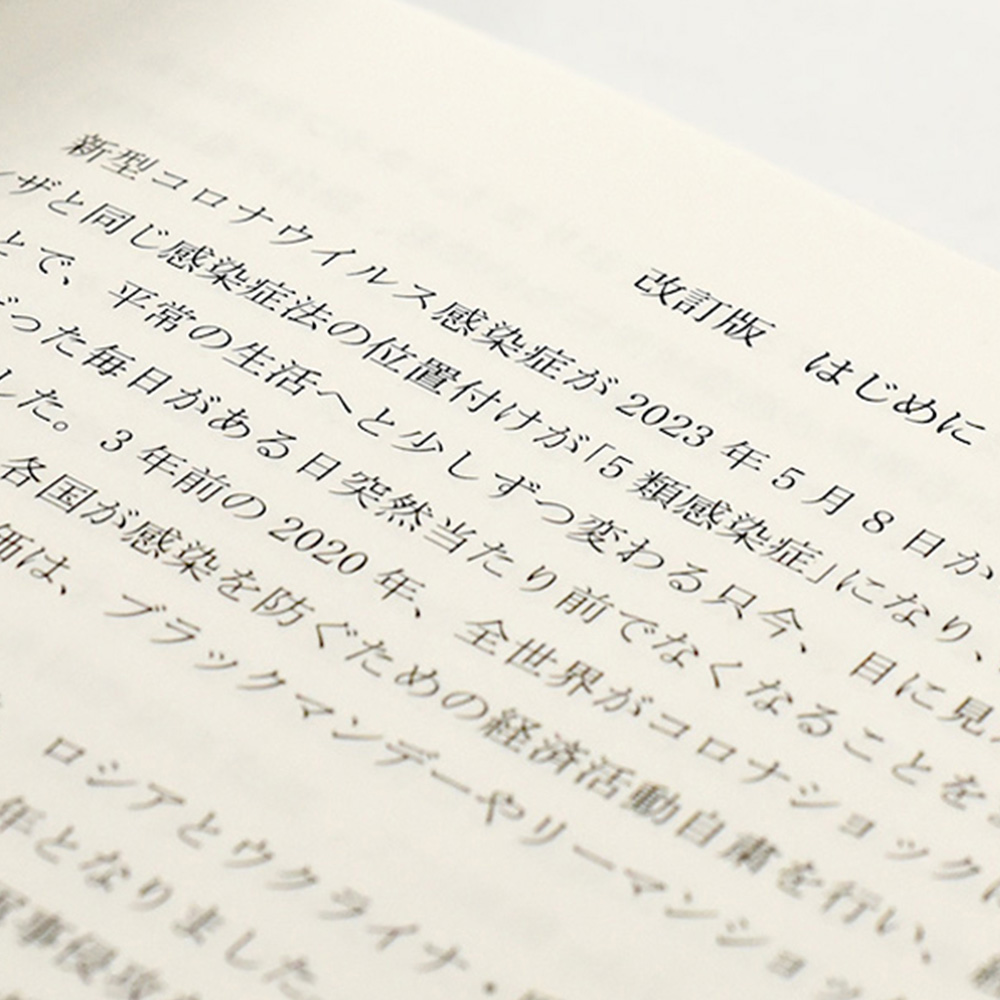 改訂版 はじめに
新型コロナウイルス感染症が2023年5月8日か
ザと同じ感染症法の位置付けが「5類感染症」になり、
とで、平常の生活へと少しずつ変わる只今、目に見
だった毎日がある日突然当たり前でなくなることを
した。3年前の2020年、全世界がコロナショック
各国が感染を防ぐための経済活動自粛を行い、
価は、ブラックマンデーやリーマンショッ
ロシアとウクライナ・
年となりました。
軍事侵攻